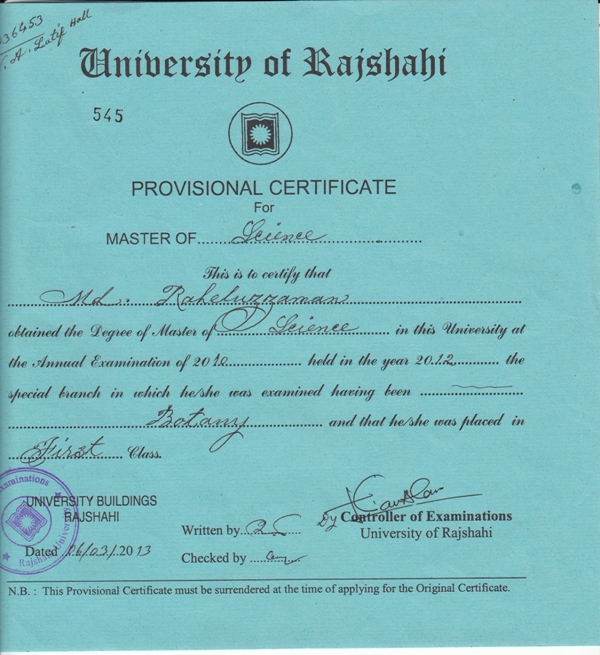 036453
A. Latif Hall
University of Rajshahi
545
PROVISIONAL CERTIFICATE
For
MASTER OF......Science..................
This is to certify that
Md. Raheluzzaman
obtained the Degree of Master of Science in this University at
the Annual Examination of 2010 held in the year 2012 the
special branch in which he/she was examined having been
Botany and that he/she was placed in
First Class.
Examinations
Rajshahi University
UNIVERSITY BUILDINGS
RAJSHAHI
Dated 16/03/2013
Written by
Checked by
Dy Controller of Examinations
University of Rajshahi
N.B. : This Provisional Certificate must be surrendered at the time of applying for the Original Certificate.